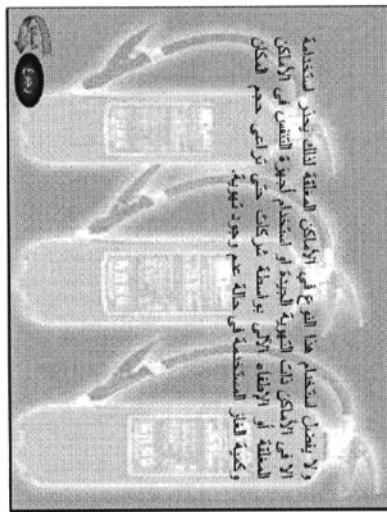 ولا يفضل استخدام هذا النوع في الأماكن المغلقة لذلك يحذر استخدامة
الا في الأماكن ذات التهوية الجيدة او استخدام أجهزة التنفس في الأماكن
المغلقة أو الإطفاء الآلي بواسطة شركات حتى تراعى حجم المكان
وكمية الغاز المستخدمة في حالة عدم وجود تهوية.